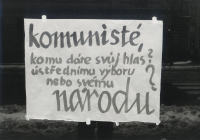 komunisté,
komu dáte svůj hlas?
ústřednímu výboru
nebo svému ?
národu